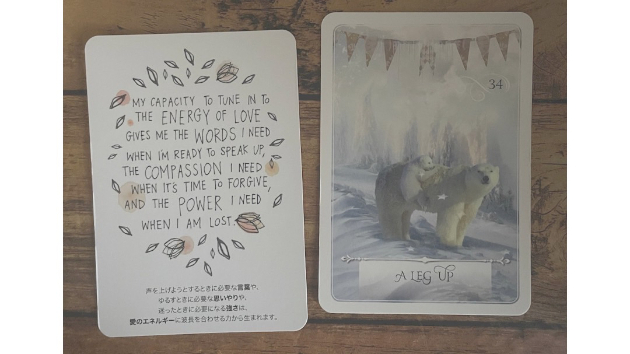 MY CAPACITY TO TUNE IN TO
THE ENERGY OF LOVE
GIVES ME THE WORDS I NEED
WHEN I'M READY TO SPEAK UP,
THE COMPASSION I NEED
WHEN IT'S TIME TO FORGIVE,
AND THE POWER I NEED
WHEN I AM LOST.
声を上げようとするときに必要な言葉や、
ゆるすときに必要な思いやりや、
迷ったときに必要になる強さは、
愛のエネルギーに波長を合わせる力から生まれます。
34
A LEG UP